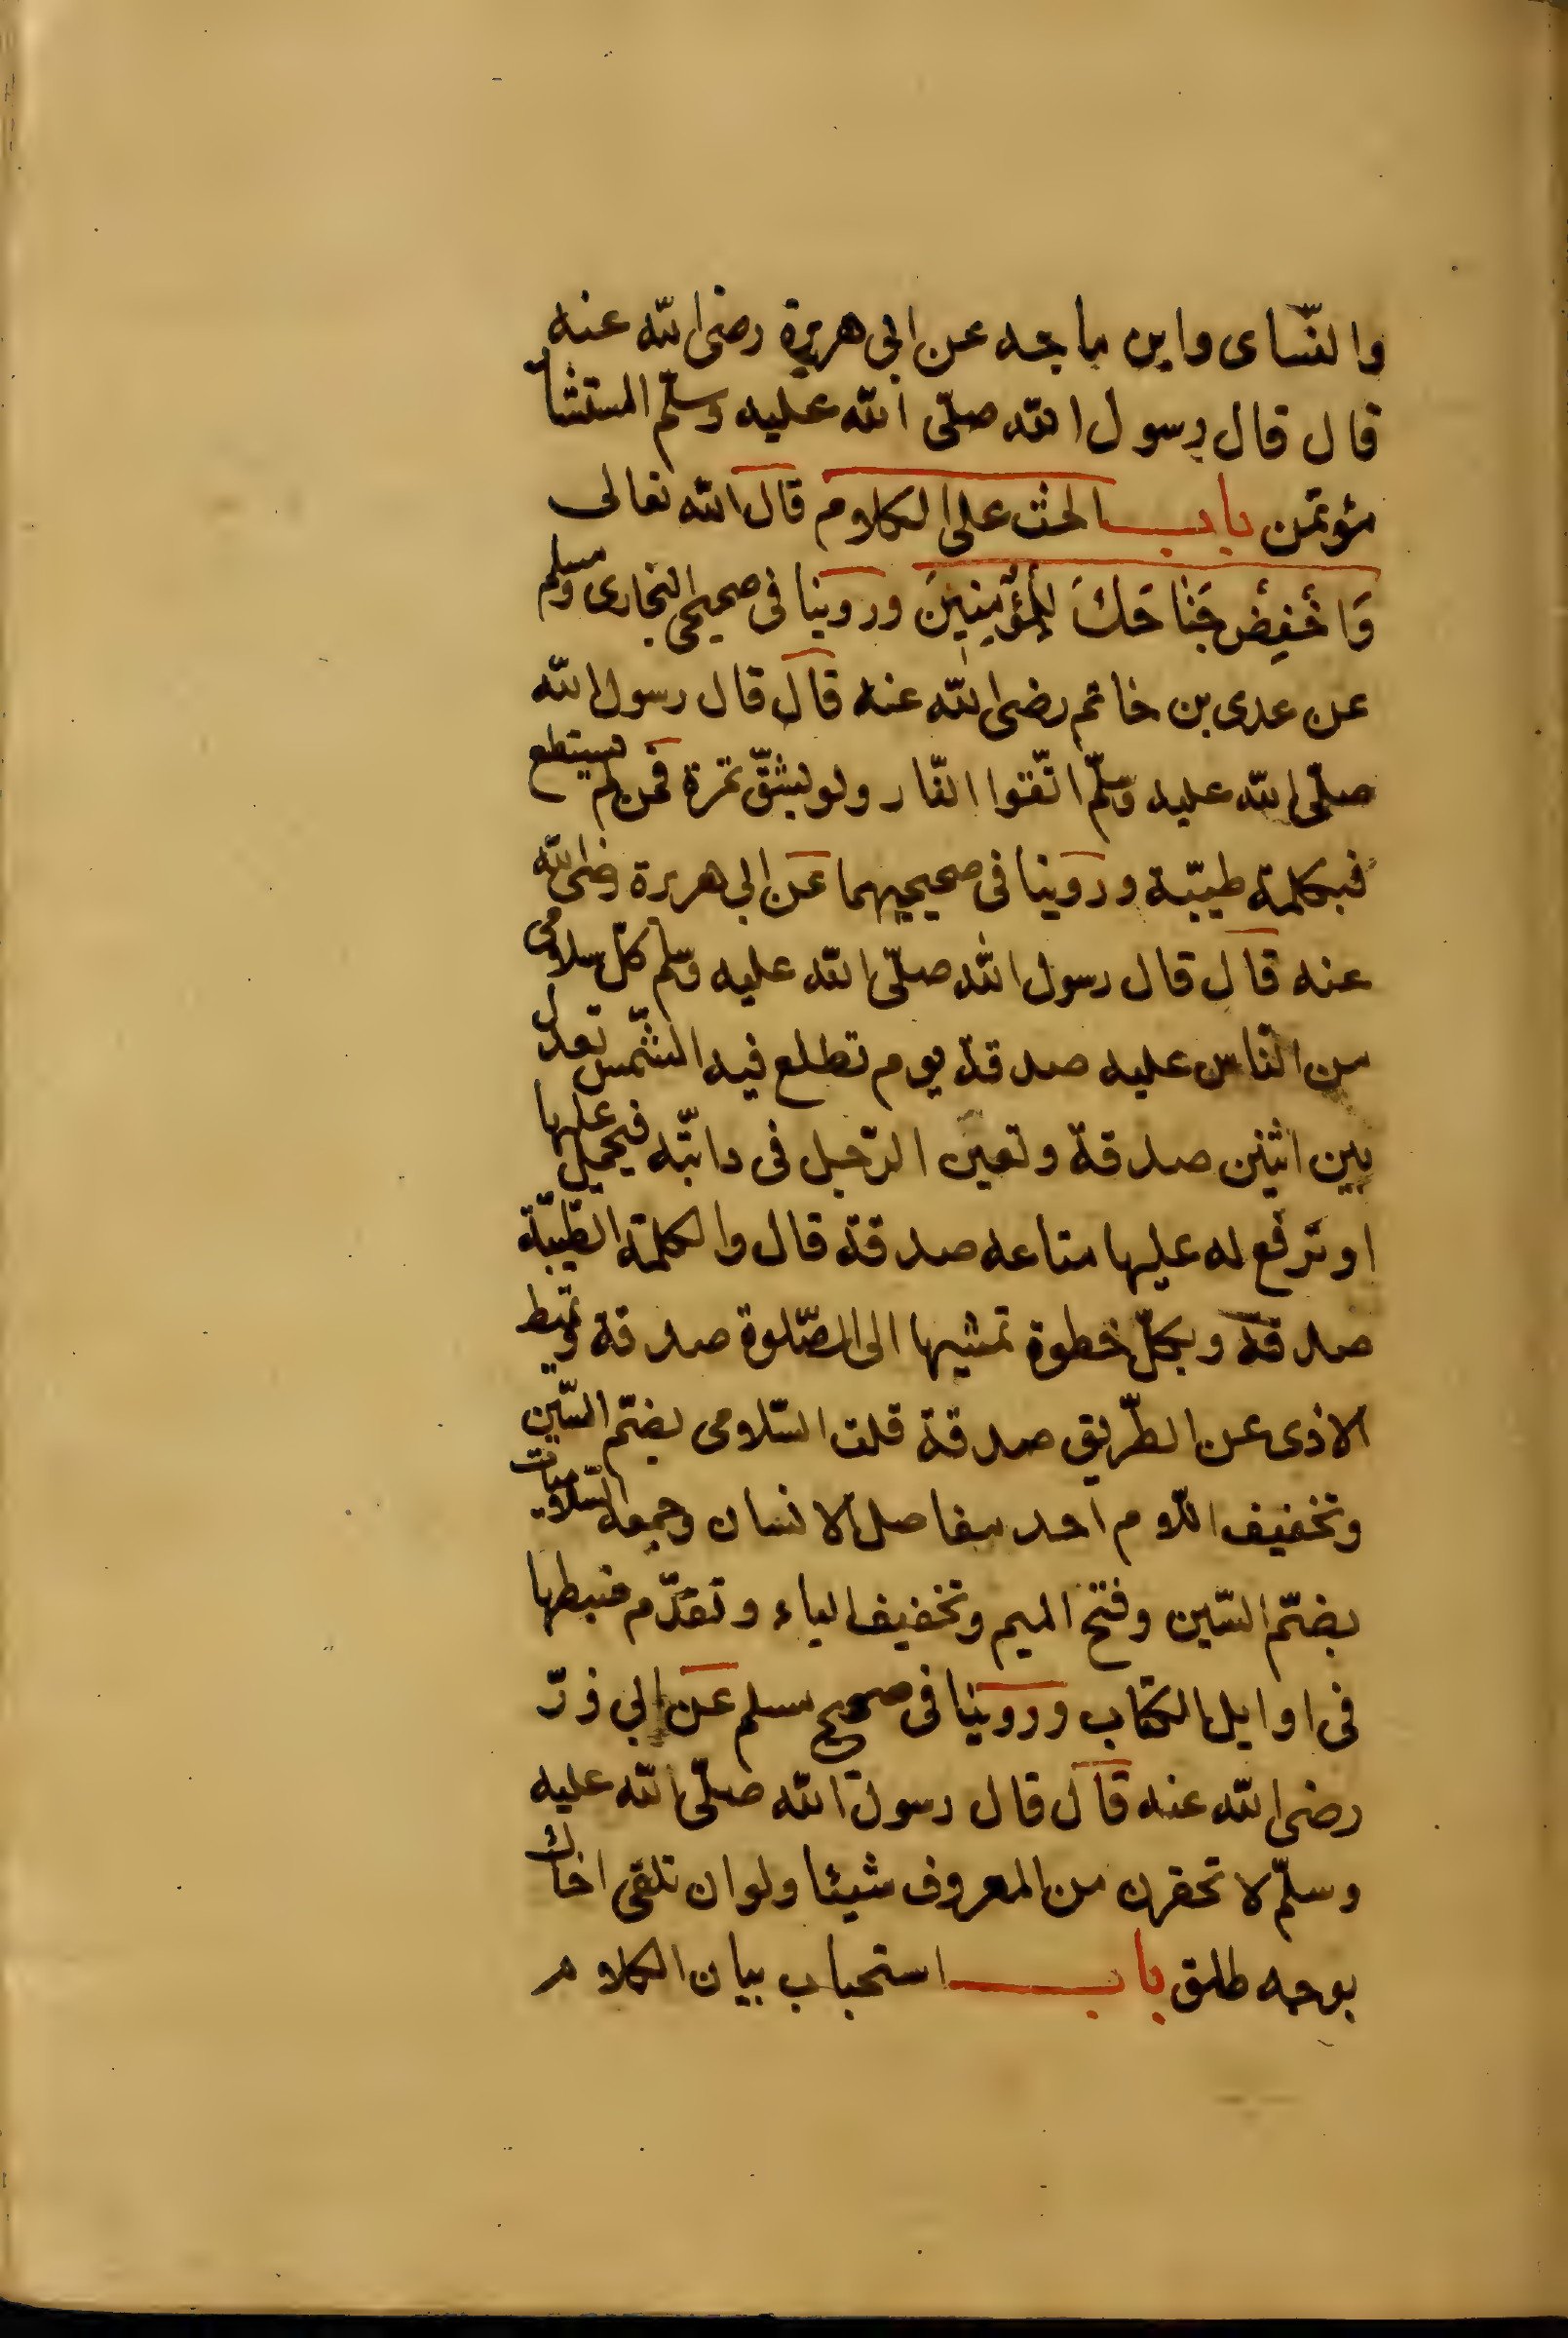 والنّساى وابن ماجه عن ابى هريرة رضى الله عنه
قال قال رسول الله صلّى الله عليه وسلّم المستشار
مؤتمن باب الحث على الكلام قال الله تعالى
وَاخْفِضْ جَنَاحَكَ لِلْمُؤْمِنِينَ وروينا فى صحيحى البخارى ومسلم
عن عدى بن خاتم رضى الله عنه قال قال رسول الله
صلّى الله عليه وسلّم اتّقوا النّار ولو بشقّ تمرة فمن لم يستطع
فبكلمة طيبّة وروينا فى صحيحيهما عن ابى هريرة رضى الله
عنه قال قال رسول الله صلّى الله عليه وسلم كلّ سلامى
من النّاس عليه صدقة يوم تطلع فيه الشّمس تعدل
بين اثنين صدقة وتعين الرّجل فى دابّته فيحمل عليها
او ترفع له عليها متاعه صدقة قال والكلمة الطّيبّة
صدقة وبكلّ خطوة تمشيها الى الصّلوة صدقة وتميط
الاذى عن الطّريق صدقة قلت السّلامى بضمّ السّين
وتخفيف اللّام احد مفاصل الانسان وجمعه السّلاميات
بضمّ السّين وفتح الميم وتخفيف الياء وتقدّم ضبطها
فى اوايل الكتاب وروينا فى صحيح مسلم عن ابى ذرّ
رضى الله عنه قال قال رسول الله صلّى الله عليه
وسلّم لا تحقرن من المعروف شيئا ولو ان تلقى اخاك
بوجه طلق باب استحباب بيان الكلام